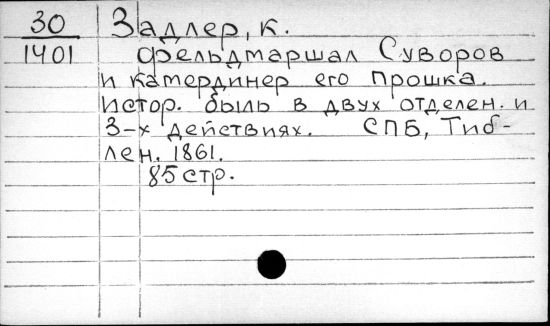 30 Задлер, К.
1401 Фельдмаршал Суворов
и камердинер его Прошка.
Истор. быль в двух отделен. и
3-х действиях. СПБ, Тиб-
лен. 1861.
85 стр.